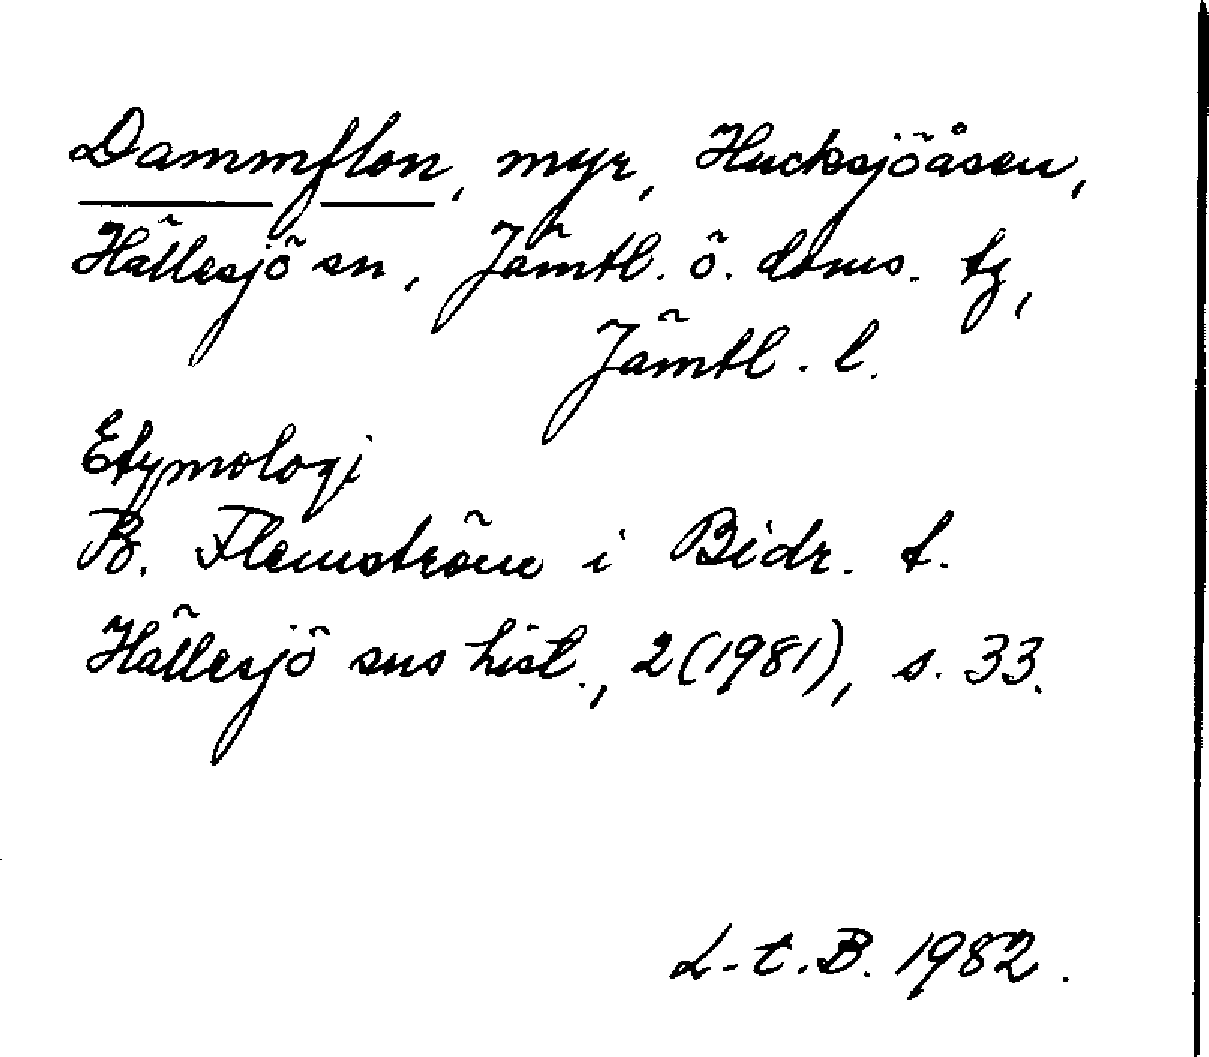 Dammflon, myr, Hucksjöåsen,
Hällesjö sn, Jämtl. ö. doms. tg,
Jämtl. l.
Etymologi
B. Flemström i Bidr. t.
Hällesjö sns hist., 2 (1981), s. 33.
L-t.B. 1982.